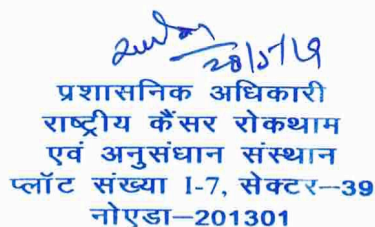 28/5/19
प्रशासनिक अधिकारी
राष्ट्रीय कैंसर रोकथाम
एवं अनुसंधान संस्थान
प्लॉट संख्या I-7, सेक्टर–39
नोएडा–201301